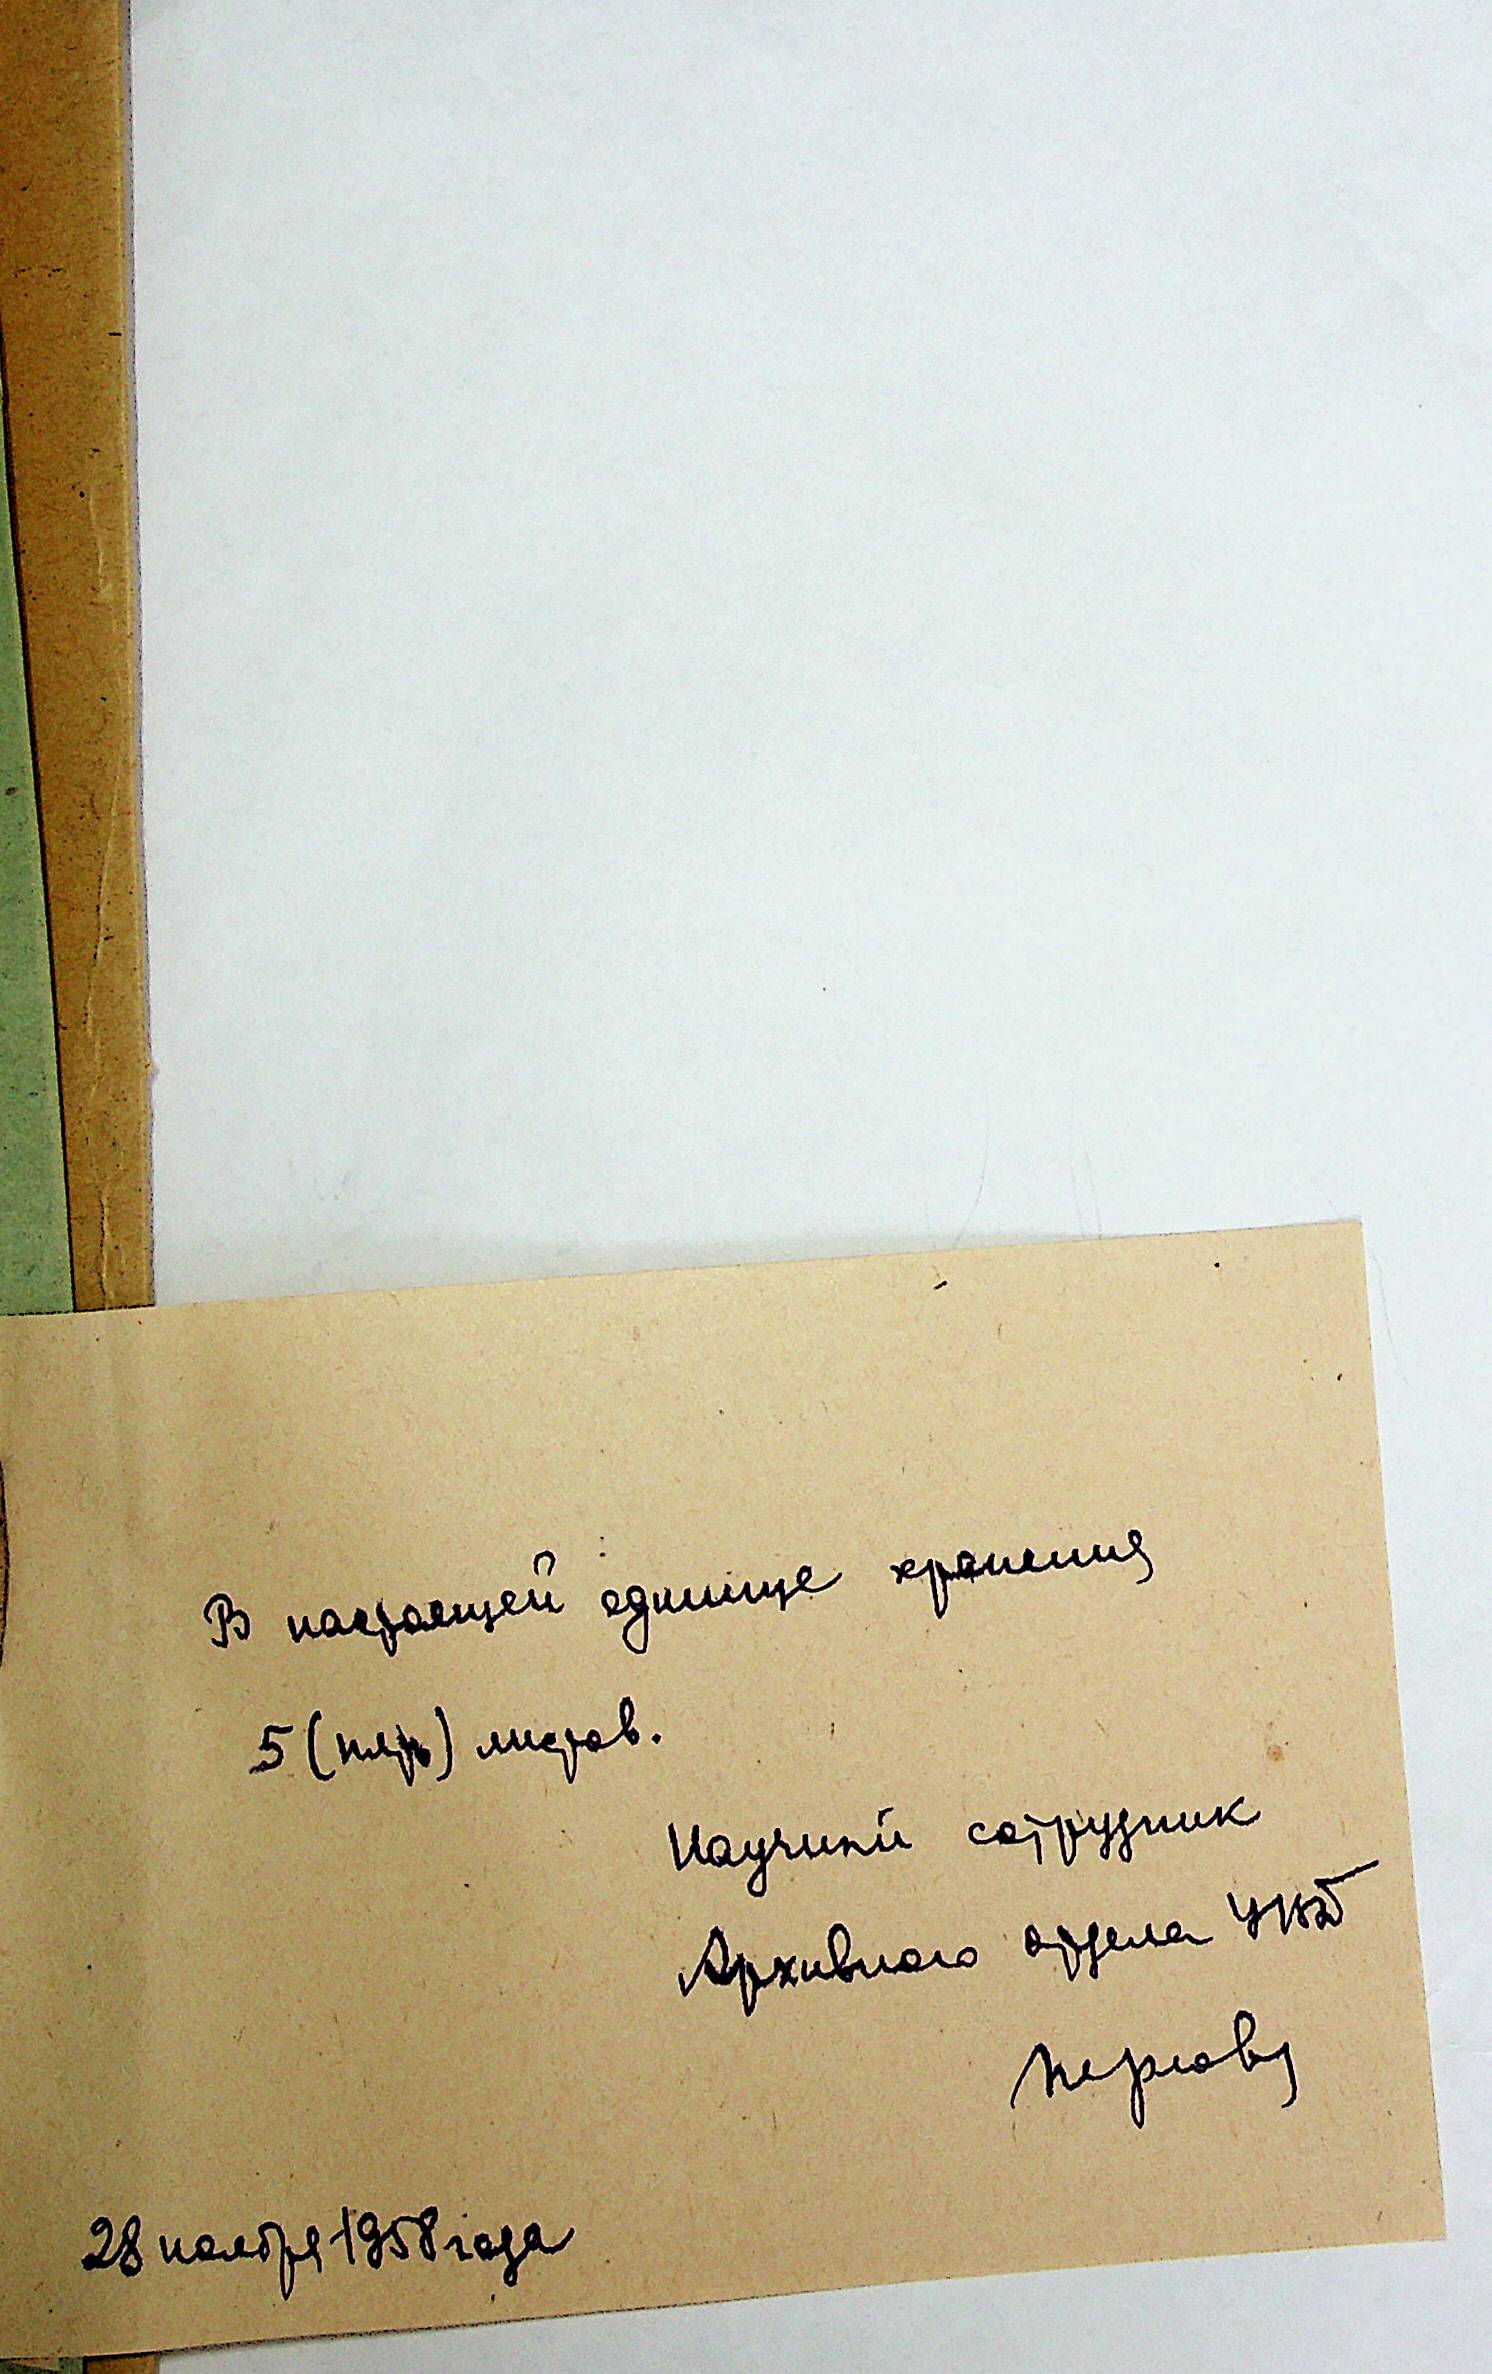 В настоящей единице хранения
5 (пять) листов.
Научный сотрудник
Архивного отдела
28 ноября 1958 года